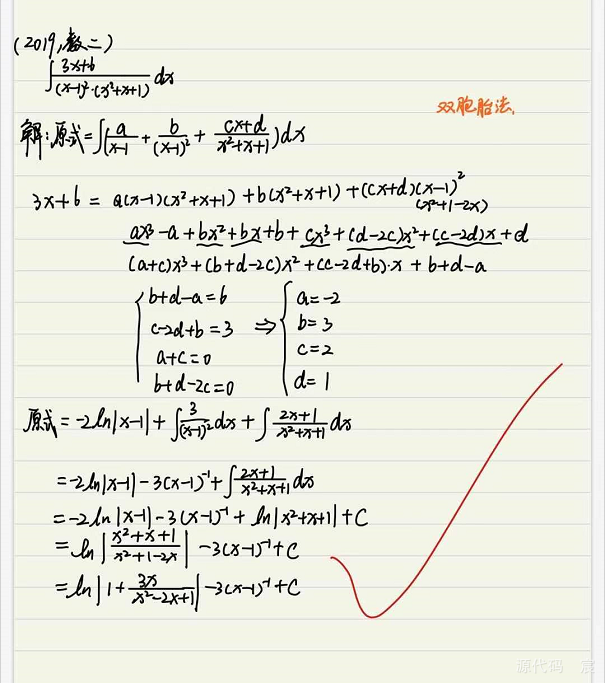 (2019,数二)
∫ (3x+6)/((x-1)²·(x²+x+1)) dx
双胞胎法.
解:原式=∫(a/(x-1) + b/(x-1)² + (cx+d)/(x²+x+1))dx
3x+6 = a(x-1)(x²+x+1)+b(x²+x+1)+(cx+d)(x-1)²
(x²+1-2x)
ax³-a+bx²+bx+b+cx³+(d-2c)x²+(c-2d)x+d
(a+c)x³+(b+d-2c)x²+(c-2d+b)·x+b+d-a
{ b+d-a=6
c-2d+b=3
a+c=0
b+d-2c=0
⇒ { a=-2
b=3
c=2
d=1
原式=-2ln|x-1|+∫ 3/(x-1)² dx+∫ (2x+1)/(x²+x+1) dx
=-2ln|x-1|-3(x-1)⁻¹+∫ (2x+1)/(x²+x+1) dx
=-2ln|x-1|-3(x-1)⁻¹+ln|x²+x+1|+C
=ln|(x²+x+1)/(x²+1-2x)|-3(x-1)⁻¹+C
=ln|1+3x/(x²-2x+1)|-3(x-1)⁻¹+C
源代码 宸